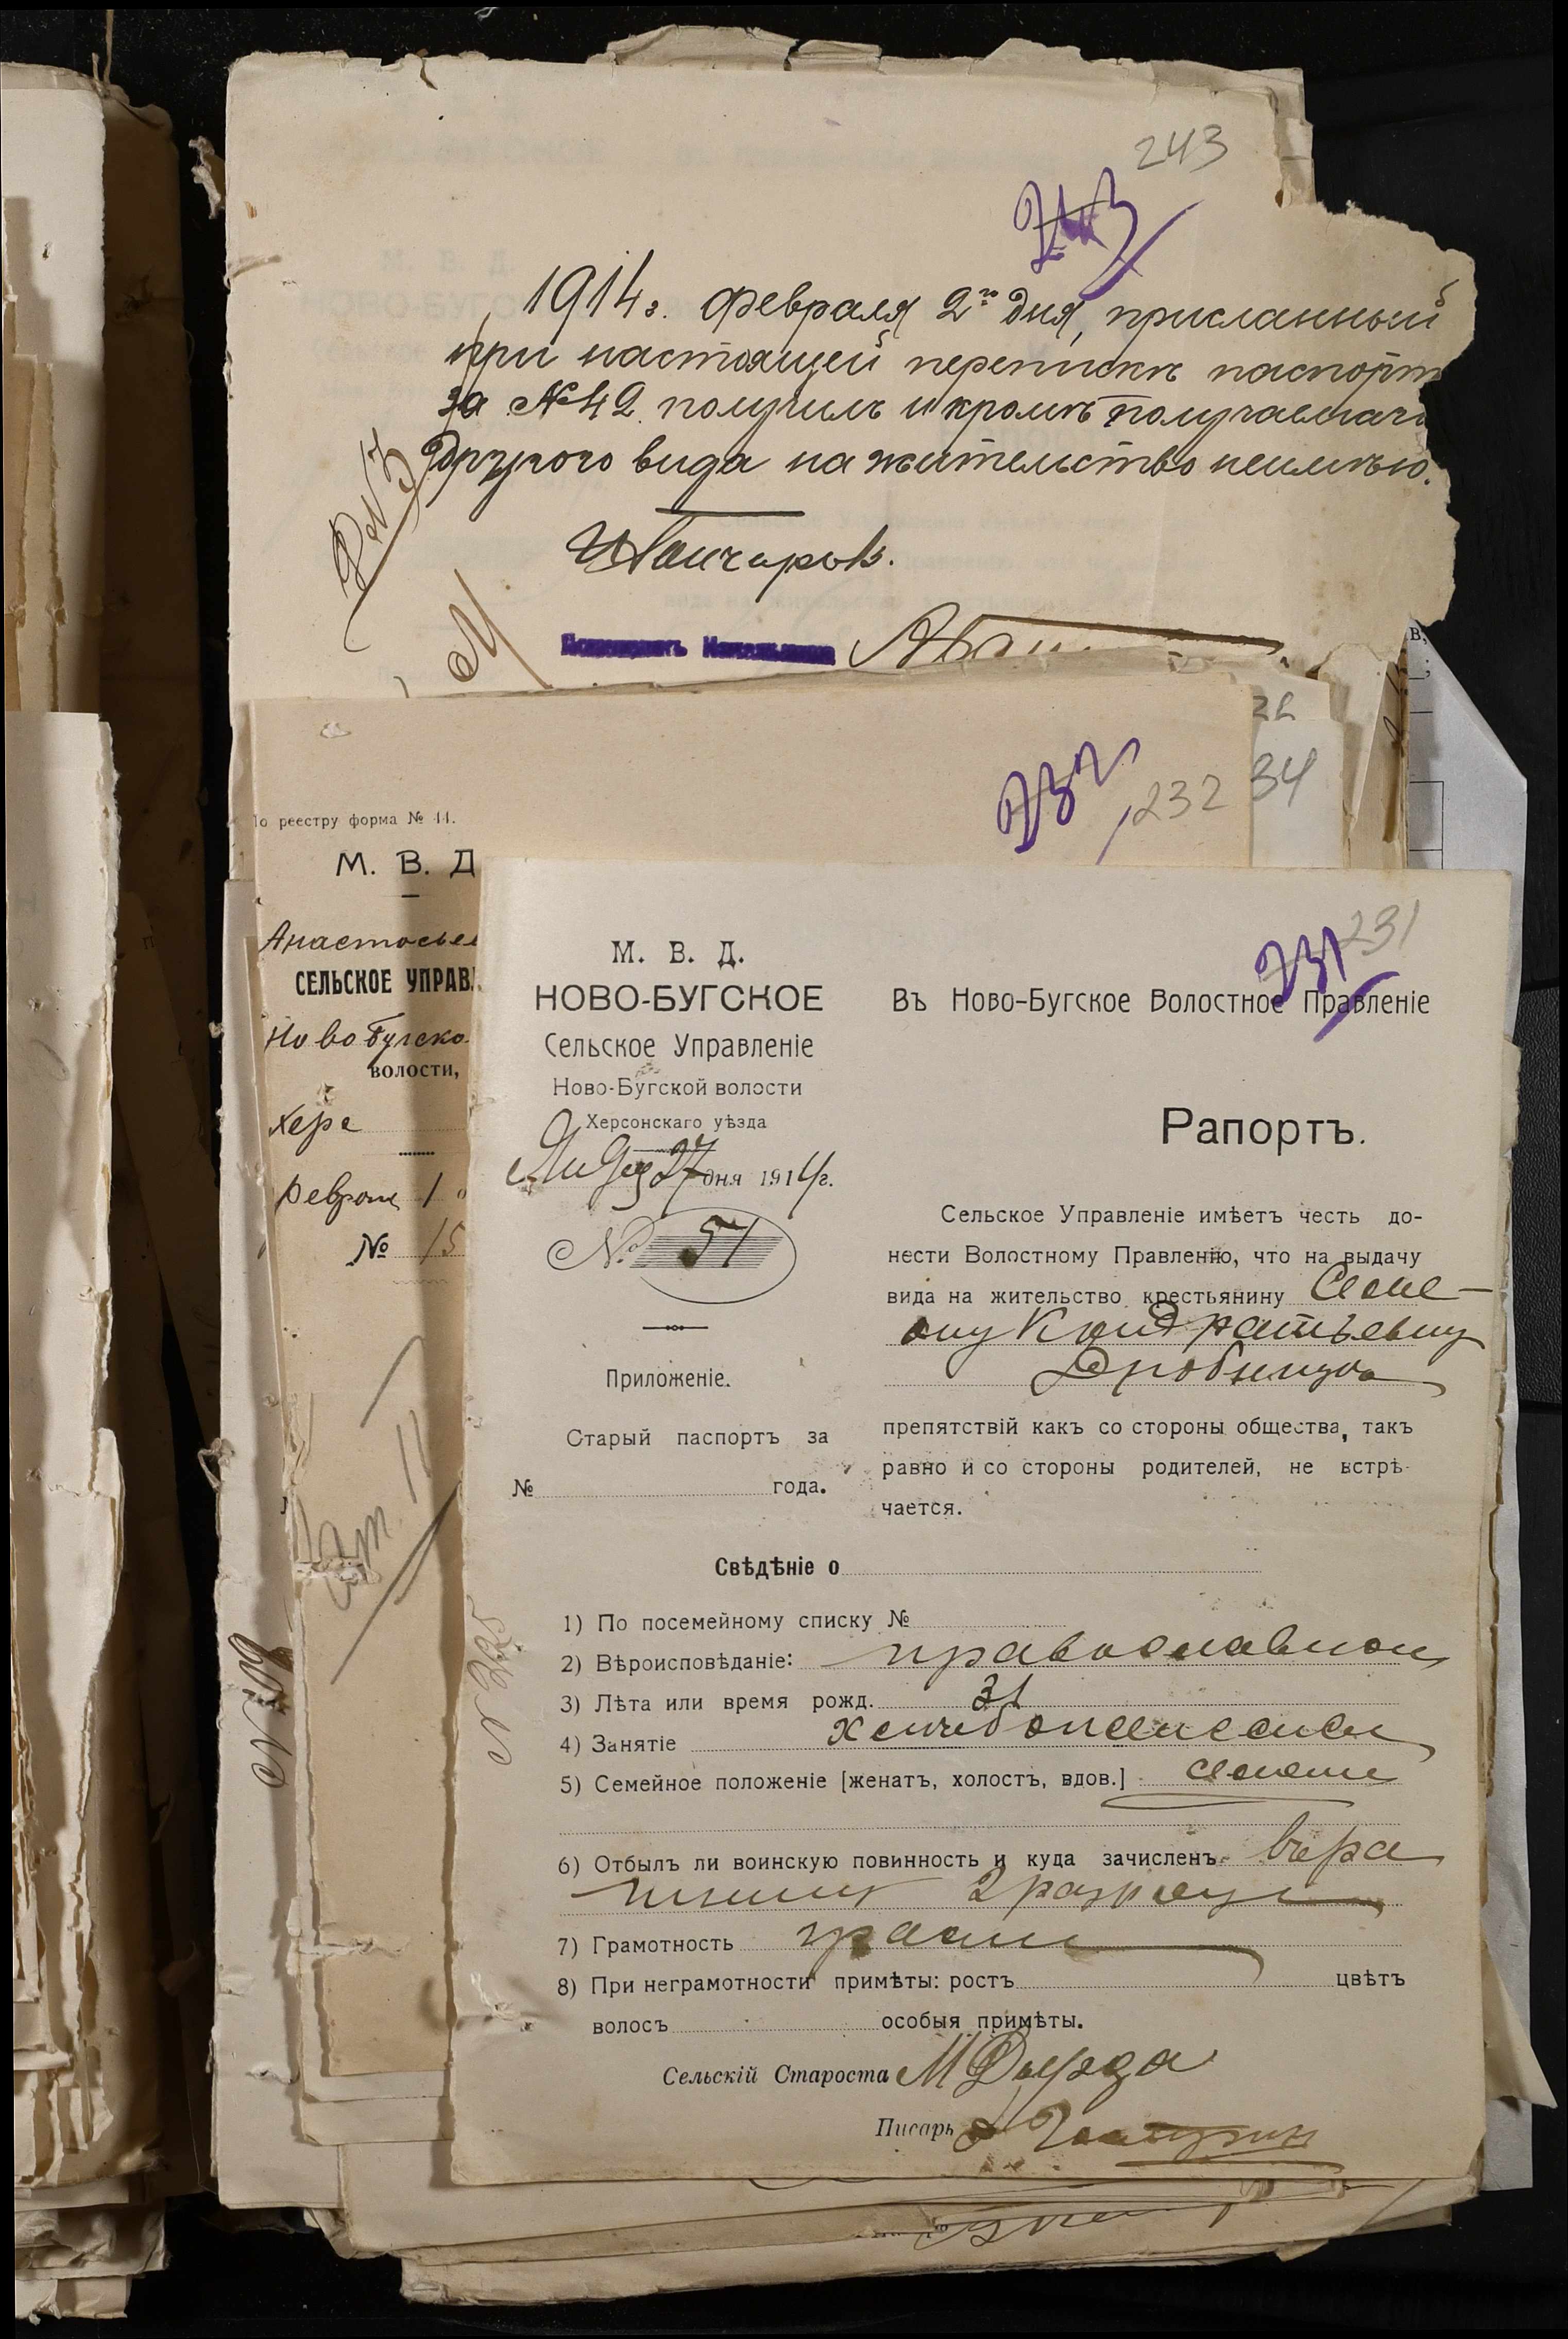 243
243
1914г. Февраля 2го дня, присланный
при настоящей перепискѣ паспортъ
за № 42 получилъ и кромѣ получаемаго
другого вида на жительство неимѣю.
Помощникъ Начальника
34
232
232
По реестру форма № 44.
М. В. Д
СЕЛЬСКОЕ УПРАВ.
Ново Бугско
волости,
Херс
Феврал 1
№ 15
231
231
М. В. Д.
НОВО-БУГСКОЕ
Сельское Управленіе
Ново-Бугской волости
Херсонскаго уѣзда
27 дня 1914г.
№ 51
Приложеніе.
Старый паспортъ за
№ года.
Въ Ново-Бугское Волостное Правленіе
Рапортъ.
Сельское Управленіе имѣетъ честь до-
нести Волостному Правленію, что на выдачу
вида на жительство крестьянину Семе-
ону Кондратьевичу
препятствій какъ со стороны общества, такъ
равно и со стороны родителей, не встрѣ-
чается.
Свѣдѣніе о
1) По посемейному списку №
2) Вѣроисповѣданіе: православное
3) Лѣта или время рожд. 31
4) Занятіе
5) Семейное положеніе [женатъ, холостъ, вдов.]
6) Отбылъ ли воинскую повинность и куда зачисленъ
2 разряда
7) Грамотность
8) При неграмотности примѣты: ростъ цвѣтъ
волосъ особыя примѣты.
Сельскій Староста
Писарь